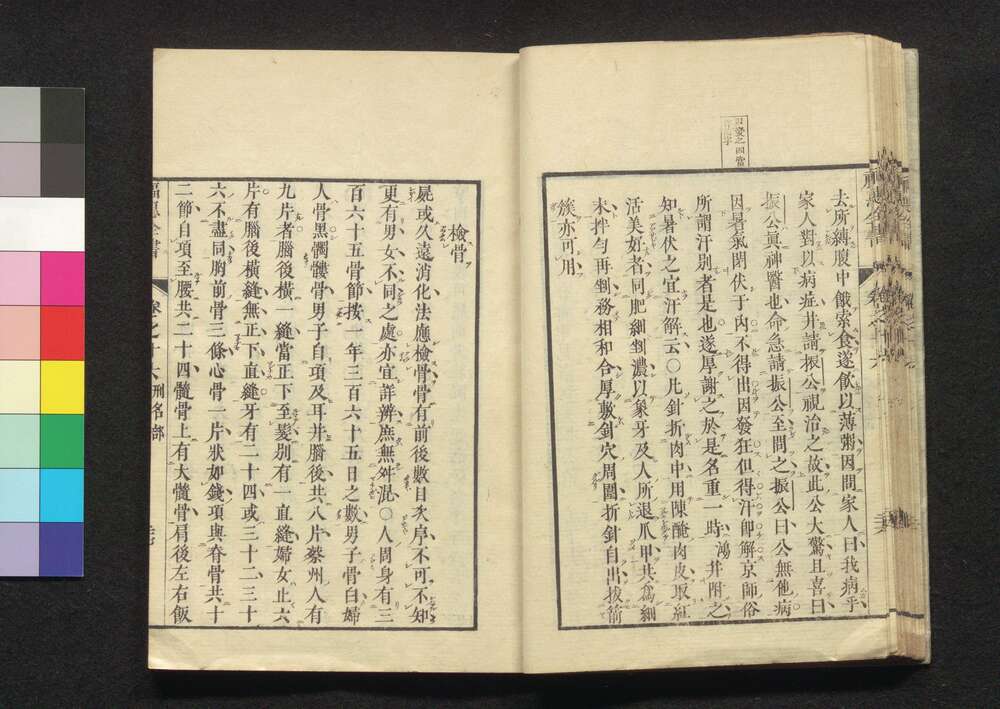 去所纏腹中餓索食遂飲以薄粥因問家人曰我病乎
家人對以病症并請振公視治之故此公大驚且喜曰
振公眞神醫也命急請振公至問之振公曰公無他病
因暑氣閉伏于内不得出因發狂但得汗即解京師俗
所謂汗別者是也遂厚謝之於是名重一時鴻并附之
知暑伏之宜汗解云○凡針折肉中用陳醃肉皮取紅
活美好者同肥細剉濃以象牙及人所退爪甲共爲細
末拌勻再剉務相和合厚敷針穴周圍折針自出拔箭
簇亦可用
檢骨
屍或久遠消化法應檢骨骨有前後數目次序不可不知
更有男女不同之處亦宜詳辨庶無舛混○人周身有三
百六十五骨節按一年三百六十五日之數男子骨白婦
人骨黒髑髏骨男子自項及耳并腦後共八片蔡州人有
九片者腦後横一縫當正下至髮別有一直縫婦女止六
片有腦後横縫無正下直縫牙有二十四或三十二三十
六不盡同胸前骨三條心骨一片狀如錢項與脊骨共十
二節自項至腰共二十四髓骨上有大髓骨肩後左右飯
福惠全書 卷之十六 刑名部